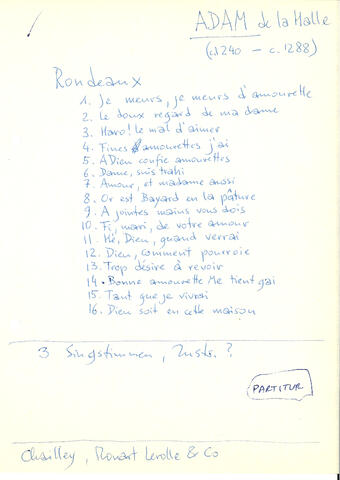 ADAM de la Halle
(c1240 – c.1288)
Rondeaux
1. Je meurs, je meurs d'amourette
2. Le doux regard de ma dame
3. Haro! Le mal d'aimer
4. Fines amourettes j'ai
5. A Dieu confie amourettes
6. Dame, suis trahi
7. Amour, et madame aussi
8. Or est Bayard en la pâture
9. A jointes mains vous dois
10. Fi, mari, de votre amour
11. Hé, Dieu, quand verrai
12. Dieu, comment pourroie
13. Trop désire à revoir
14. Bonne amourette Me tient gai
15. Tant que je vivrai
16. Dieu soit en cette maison
3 Singstimmen, Instr. ?
PARTITUR
Chailley, Rouart Lerolle & Co